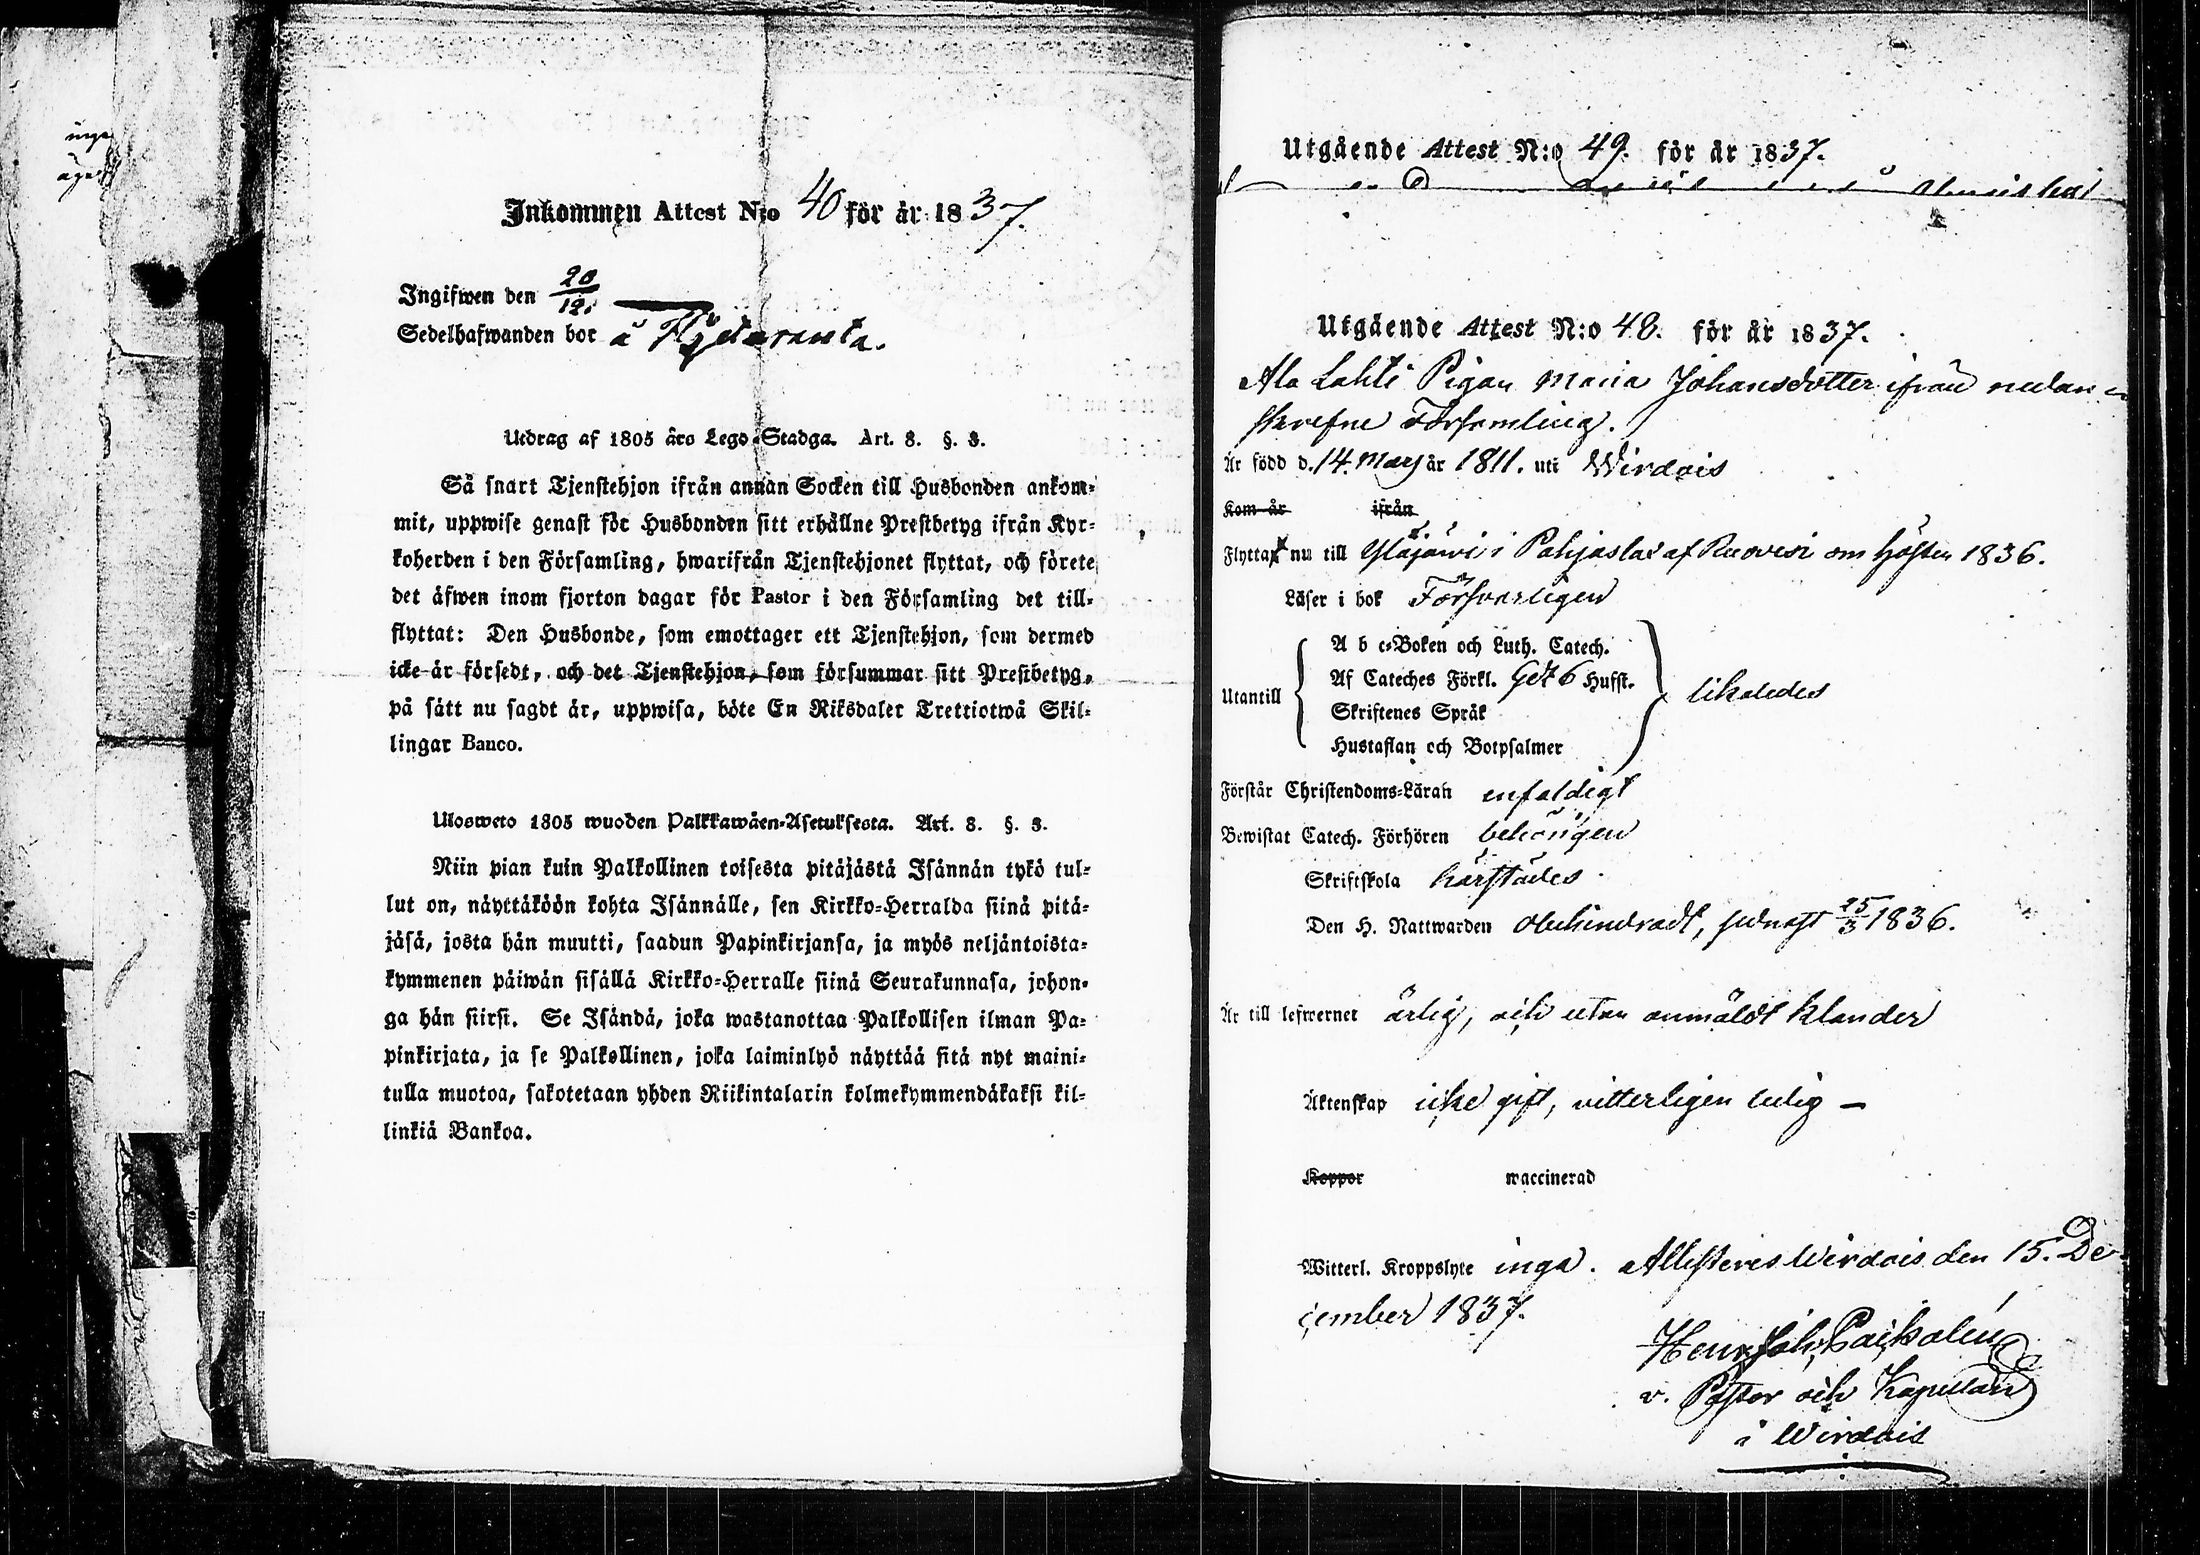 inga
Inkommen Attest N:o 40 för år 1837.
Ingifwen den 20/12.
Sedelhafwanden bor å Flydaranta.
Utdrag af 1805 års Lego-Stadga. Art. 8. §. 3.
Så snart Tjenstehjon ifrån annan Socken till Husbonden ankom-
mit, uppwise genast för Husbonden sitt erhållne Prestbetyg ifrån Kyr-
koherden i den Församling, hwarifrån Tjenstehjonet flyttat, och förete
det äfwen inom fjorton dagar för Pastor i den Församling det till-
flyttat: Den Husbonde, som emottager ett Tjenstehjon, som dermed
icke är försedt, och det Tjenstehjon, som försummar sitt Prestbetyg,
på sätt nu sagdt är, uppwisa, böte En Riksdaler Trettiotwå Skil-
lingar Banco.
Ulosweto 1805 wuoden Palkkawäen-Asetuksesta. Art. 8. §. 3.
Niin pian kuin Palkollinen toisesta pitäjästä Isännän tykö tul-
lut on, näyttäköön kohta Isännälle, sen Kirkko-Herralda siinä pitä-
jäsä, josta hän muutti, saadun Papinkirjansa, ja myös neljäntoista-
kymmenen päiwän sisällä Kirkko-Herralle siinä Seurakunnasa, johon-
ga hän siirsi. Se Isändä, joka wastanottaa Palkollisen ilman Pa-
pinkirjata, ja se Palkollinen, joka laiminlyö näyttää sitä nyt maini-
tulla muotoa, sakotetaan yhden Riikintalarin kolmekymmendäkaksi kil-
linkiä Bankoa.
Utgående Attest N:o 49. för år 1837.
Utgående Attest N:o 48. för år 1837.
Ala Lahti Pigan Maria Johansdotter ifrån nedan-
skrefne Församling.
Är född d. 14. Maij år 1811. uti Wirdois
Kom år ifrån
Flyttat nu till Yläjärwi i Pohjaslax af Ruovesi om hösten 1836.
Läser i bok Försvarligen
Utantill
A b c-Boken och Luth. Catech.
Af Cateches Förkl. Get 6 Hufst.
Skriftenes Språk
Hustaflan och Botpsalmer
likaledes
Förstår Christendoms-Läran enfaldigt
Bewistat Catech. Förhören behörigen
Skriftskola härstädes.
Den H. Nattwarden obehindradt, sednast 25/3 1836.
Är till lefwernet ärlig, och utan anmäldt klander
Äktenskap icke gift, vitterligen ledig —
Koppor waccinerad
Witterl. Kroppslyte inga. Attesteres Wirdois den 15. De-
cember 1837.
Henr. Joh.
v. Pastor och Kapellan
i Wirdois